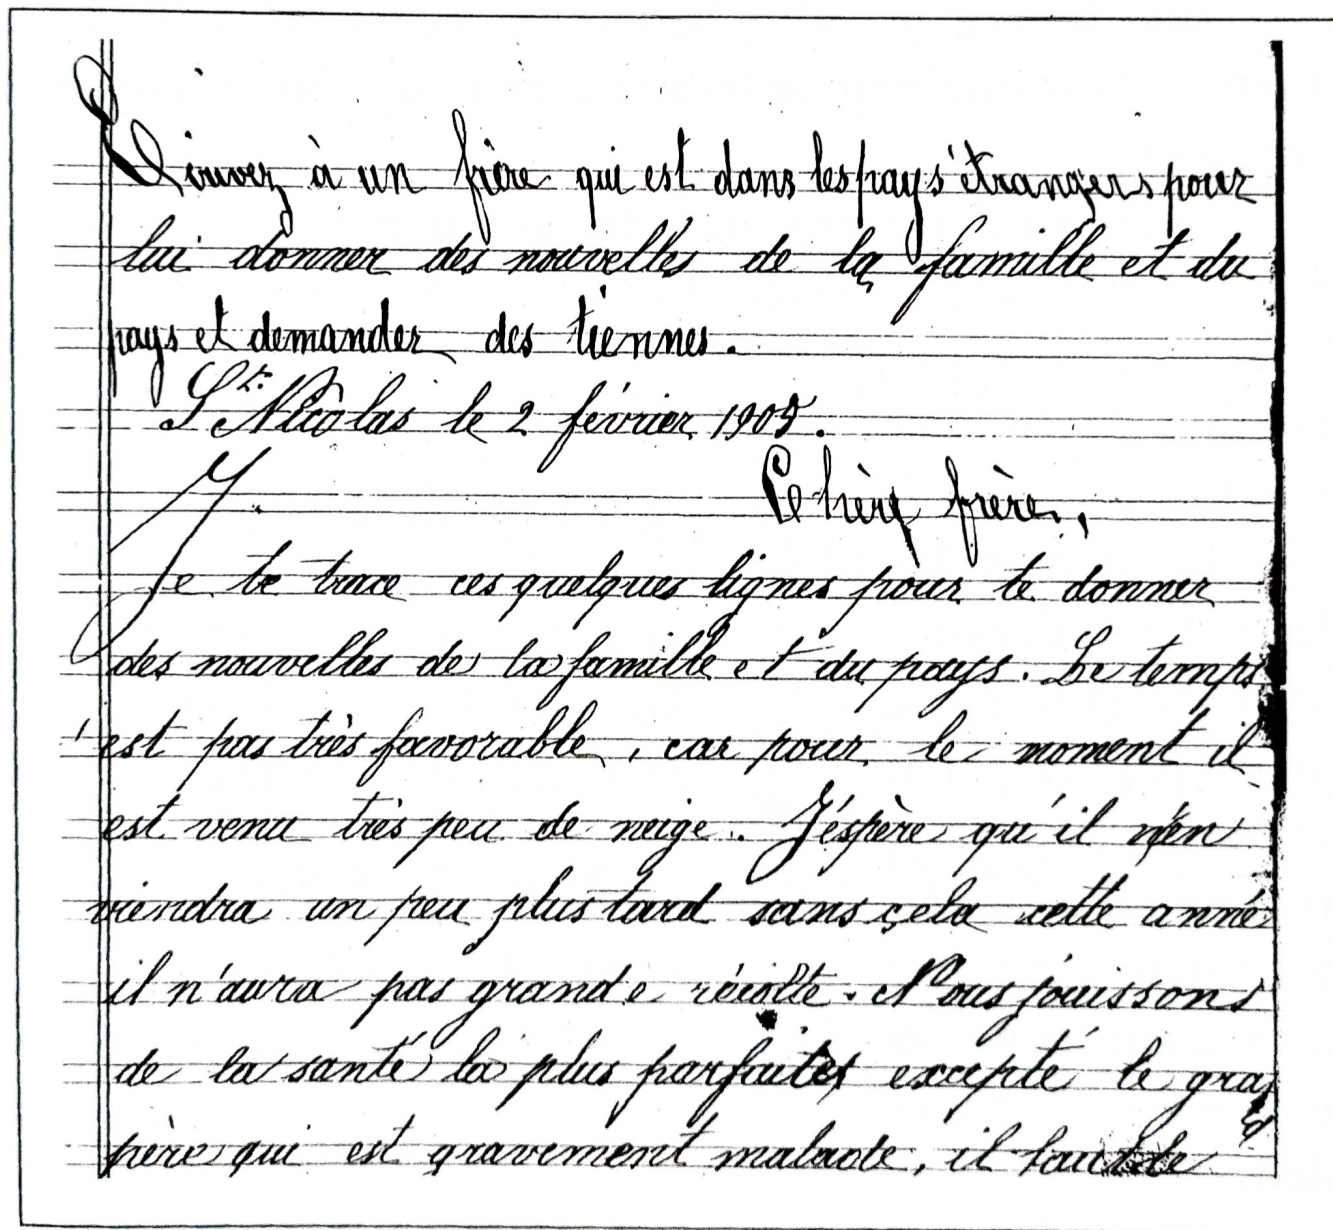 Ecrivez à un frère qui est dans les pays étrangers pour
lui donner des nouvelles de la famille et du
pays et demander des tiennes.
St. Nicolas le 2 février 1905.
Cehèrę frère,
Je te trace ces quelques lignes pour te donner
des nouvelles de la famille et du pays. Le temps
'est pas très favorable, car pour le moment il
est venu très peu de neige. J'éspère qu'il n'en
viendra un peu plus tard sans çela cette anné
il n'aura pas grande récolte. Nous jouissons
de la santé la plus parfaites excepté le grand
père qui est gravement malade, il